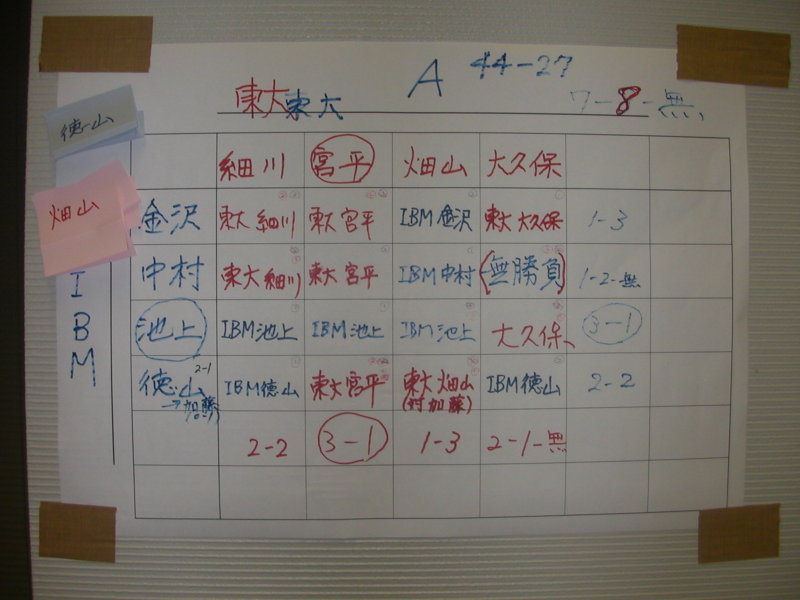 A 44-27
東大 東大 7-8-無
徳山
細川 宮平 畑山 大久保
畑山
金沢 東大 細川 東大 宮平 IBM 金沢 東大 大久保 1-3
IBM
中村 東大 細川 東大 宮平 IBM 中村 (無勝負) 1-2-無
池上 IBM 池上 IBM 池上 IBM 池上 大久保 3-1
2-1
徳山 IBM 徳山 東大 宮平 東大 畑山 IBM 徳山 2-2
→加藤 (対加藤)
2-2 3-1 1-3 2-1-無